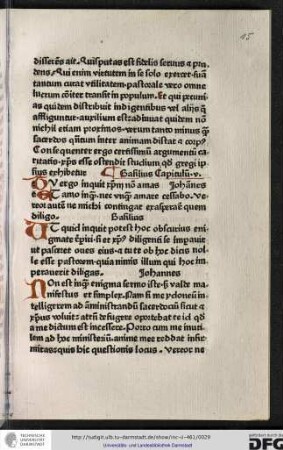 15
disserēs ait. Quis putas est fidelis seruus ⁊ pru
dens. Qui enim virtutem in se solo exercet suā
tantum curat vtilitatem pastorale vero omne
lucrum cōiter transit in populum. Et qui pecuni
as quidem distribuit indigentibus vel alijs
affliguntur auxilium est radiauat quidem nō
nichil etiam proximos verum tanto minus qͣ
sacerdos qͣntum inter animam distat ⁊ corpꝰ
Consequenter ergo certissimū argumentū ca
ritatis xp̄s esse ostendit studium qd gregi ip
sius exhibetur Basilius Capitulū v.
TU ergo inquit xp̄m nō amas Johānes
Et amo inqͣ nec vnqͣ amare cessabo. Ve
rox autē is michi contingat exasperāt quem
diligo. Basilius
AC quid inquit potest hoc obscurius eni
gmate si et xp̄s diligenti se impauit
ut pasceret oues eius ⁊ a tute ob hoc dicis nol
le esse pastorem quia nimis illum qui hoc im
perauerit diligas. Johannes
NOn est inqͣ enigma sermo iste valde ma
nifestus et simplex. Nam si me ydoneū in
telligerem ad āministrandū sacerdociū sicut ⁊
xp̄us voluit: attn̄ defugere oportebat te id qd
a me dictum est incessere. Porro cum me inuti
lem ad hoc ministeriū anime mee reddat infir
mitas: quis hic questionis locus. Veroꝛ ne
TECHNISCHE UNIVERSITÄT DARMSTADT
http://tudigit.ulb.tu-darmstadt.de/show/inc-ii-461/0029
Universitäts- und Landesbibliothek Darmstadt
gefördert durch die
DFG